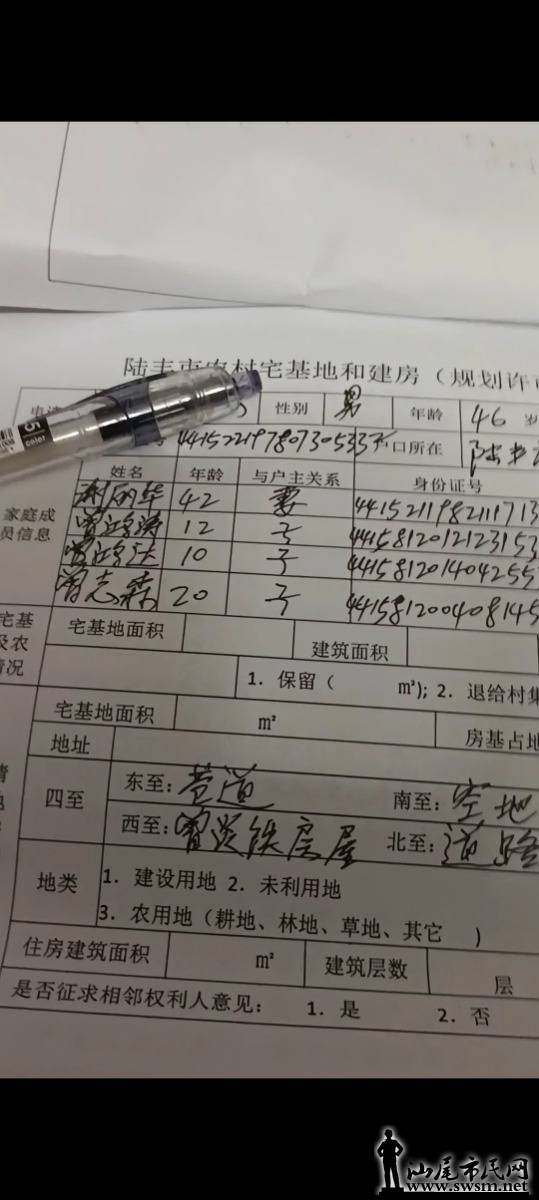 陆丰市农村宅基地和建房（规划许可
性别 男 年龄 46 岁
号 44152219780730533 户口所在 陆丰
姓名 年龄 与户主关系 身份证号
家庭成员信息
谢丽华 42 妻 44152119821117 13
曾鸿涛 12 子 4415812012123153
曾鸿达 10 子 441581201404255
曾志森 20 子 441581200408145
宅基地面积 建筑面积
1. 保留（ m²); 2. 退给村集
宅基地面积 m² 房基占地
地址
四至 东至: 巷道 南至: 空地
西至: 房屋 北至: 道路
地类 1. 建设用地 2. 未利用地
3. 农用地（耕地、林地、草地、其它 ）
住房建筑面积 m² 建筑层数 层
是否征求相邻权利人意见： 1. 是 2. 否
5
color
汕尾市民网
www.swsm.net